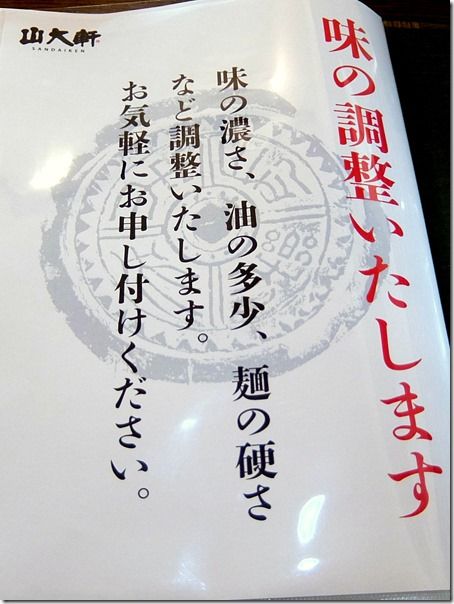 山大軒
SANDAIKEN
味の調整いたします
味の濃さ、油の多少、麺の硬さ
など調整いたします。
お気軽にお申し付けください。